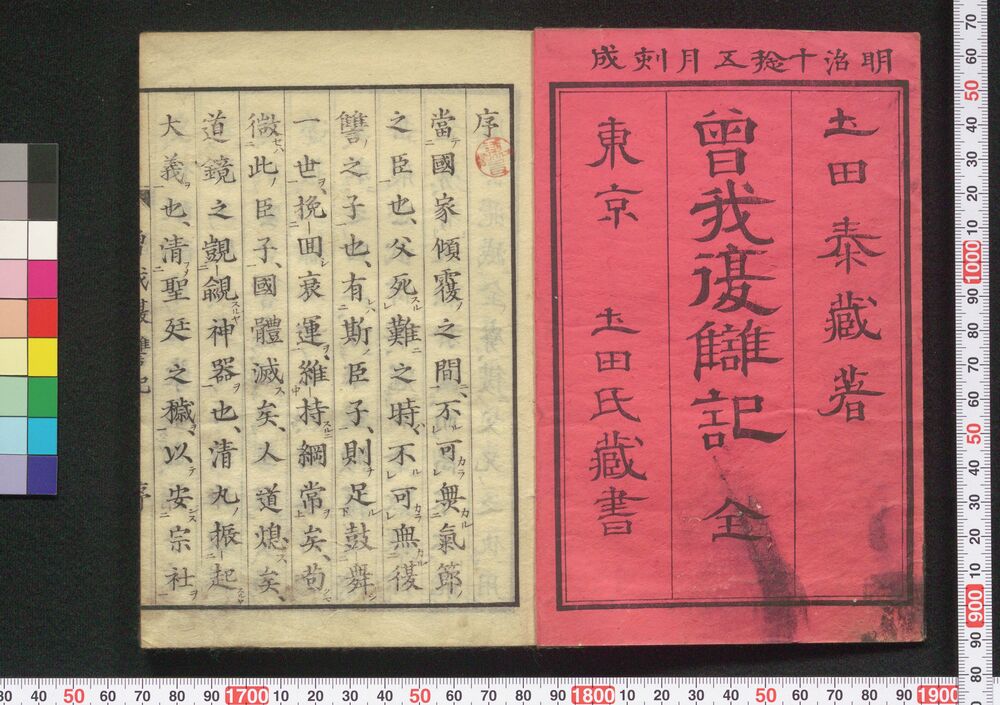 明治十稔五月刻成
圡田泰藏著
曾我復讎記 全
東京 圡田氏藏書
序
當國家傾覆之間、不可無氣節
之臣也、父死難之時、不可無復
讐之子也、有斯臣子、則足鼓舞
一世挽回衰運維持綱常矣、苟
微此臣子、國體滅矣、人道熄矣、
道鏡之覬覦神器也、清丸振起
大義也、清聖廷之穢以安宗社
序